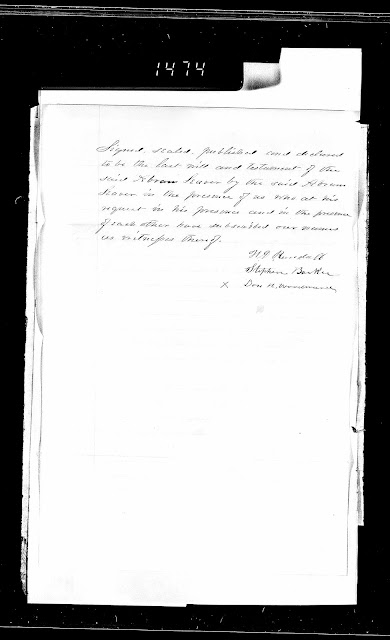 1474
Signed, sealed, published and declared
to be the last will and testament of the
said Abram Seaver by the said Abram
Seaver in the presence of us who at his
request in his presence and in the presence
of each other have subscribed our names
as witnesses thereof.
Stephen Barker
x Don H.